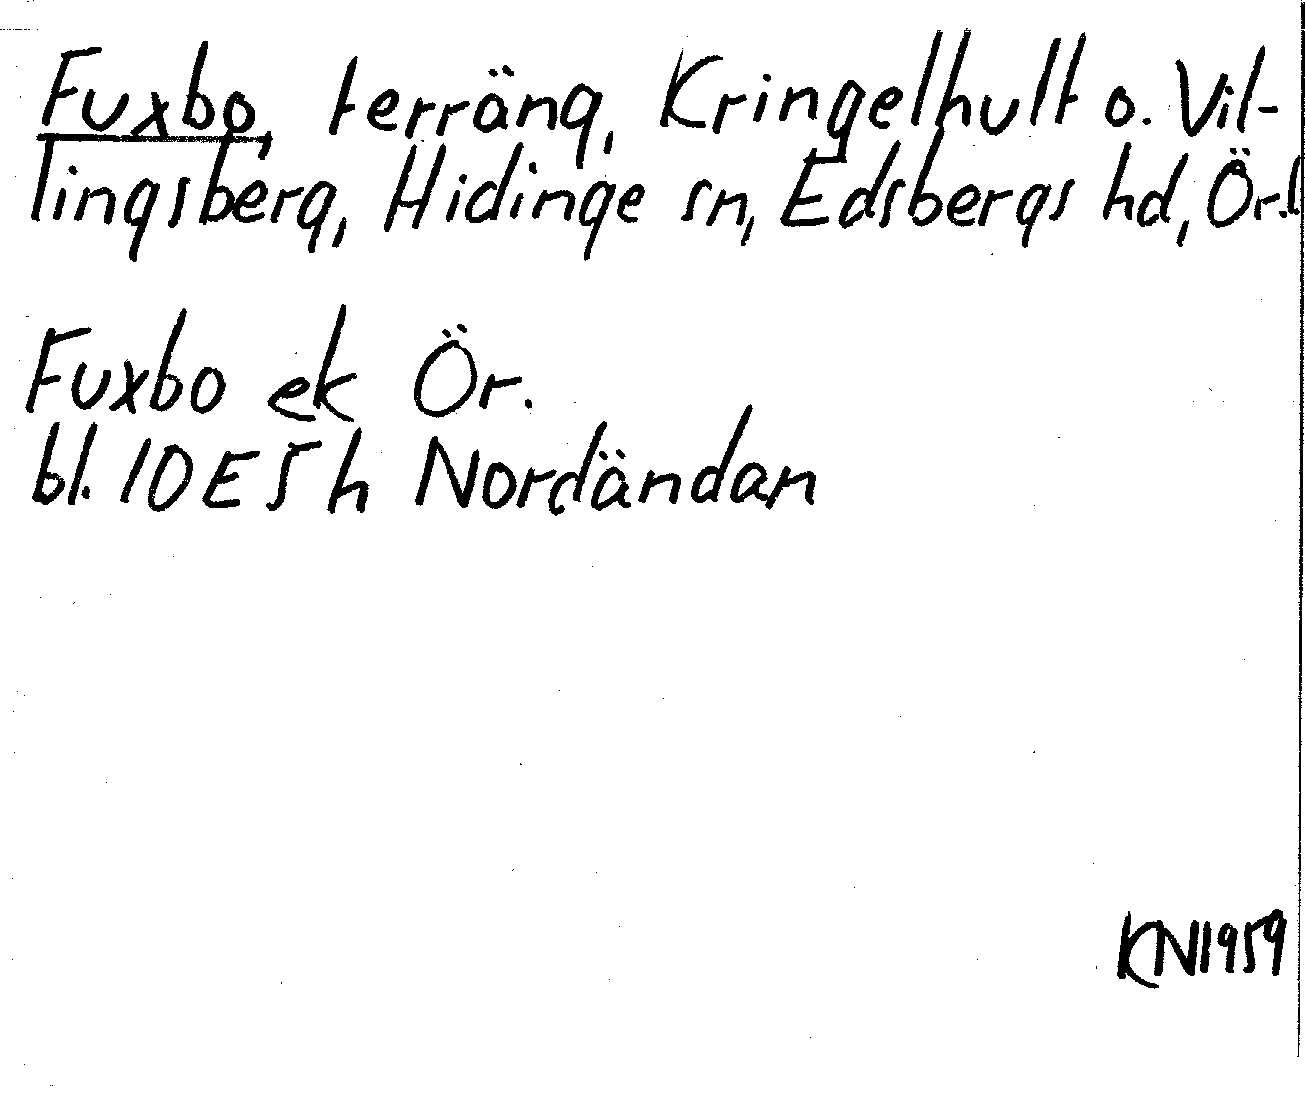 Fuxbo, terräng, Kringelhult o. Vil-
lingsberg, Hidinge sn, Edsbergs hd, Ör.l
Fuxbo ek Ör.
bl. 10E5h Nordändan
KN1959